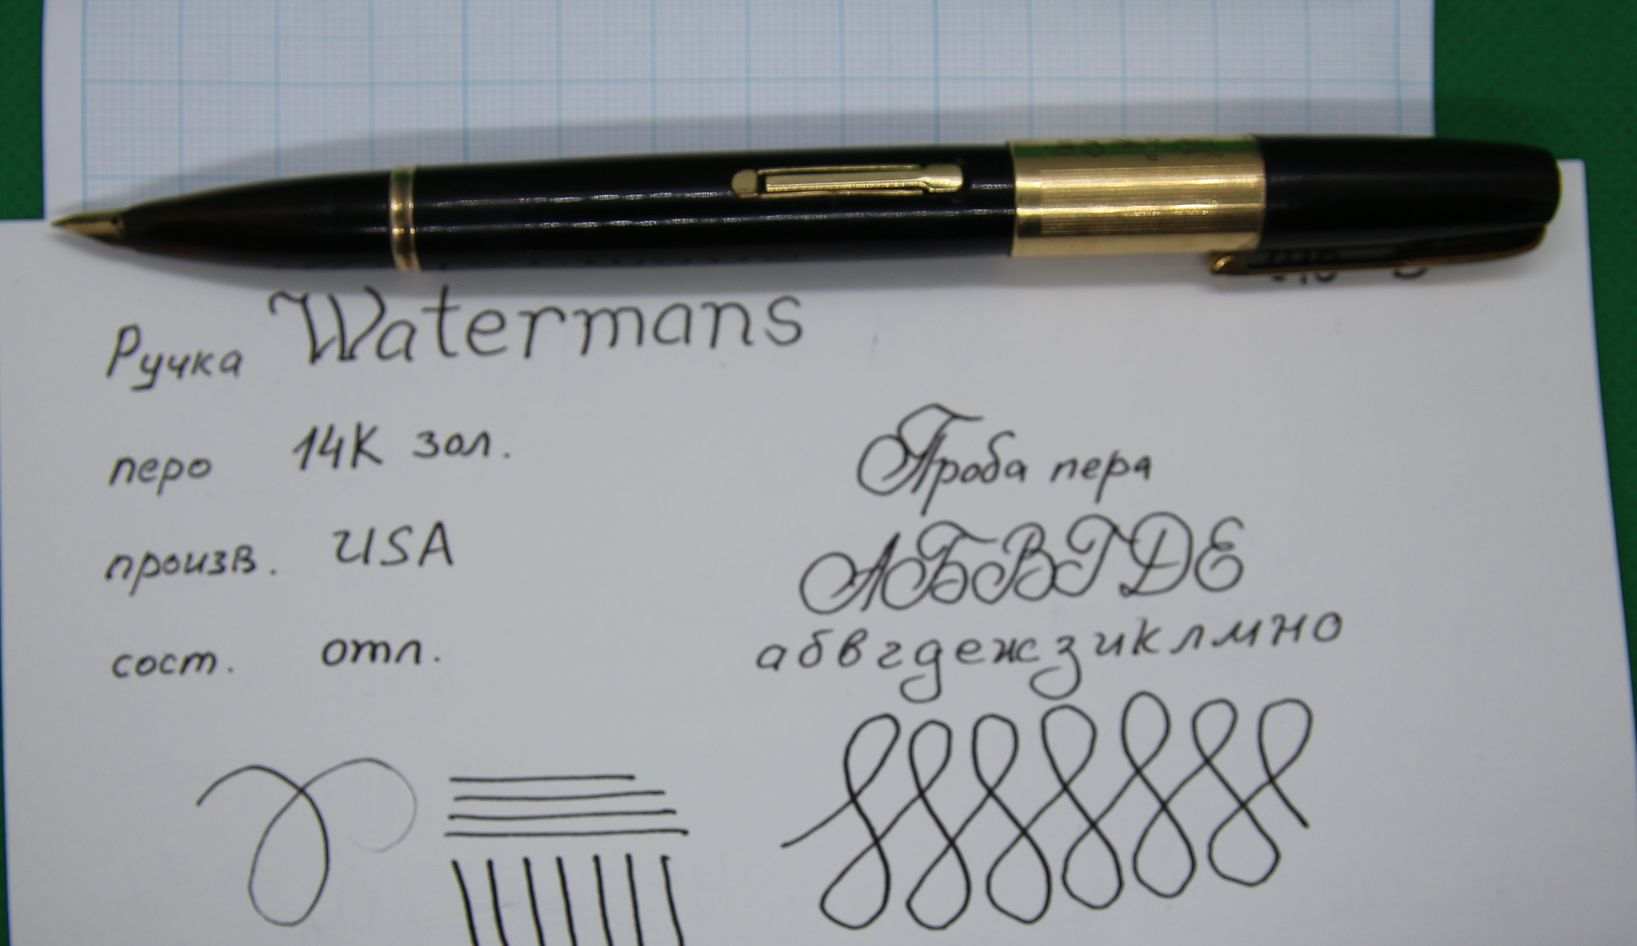 Ручка Watermans
перо 14К зол.
произв. USA
сост. отл.
Проба пера
АБВГДЕ
абвгдежзиклмно